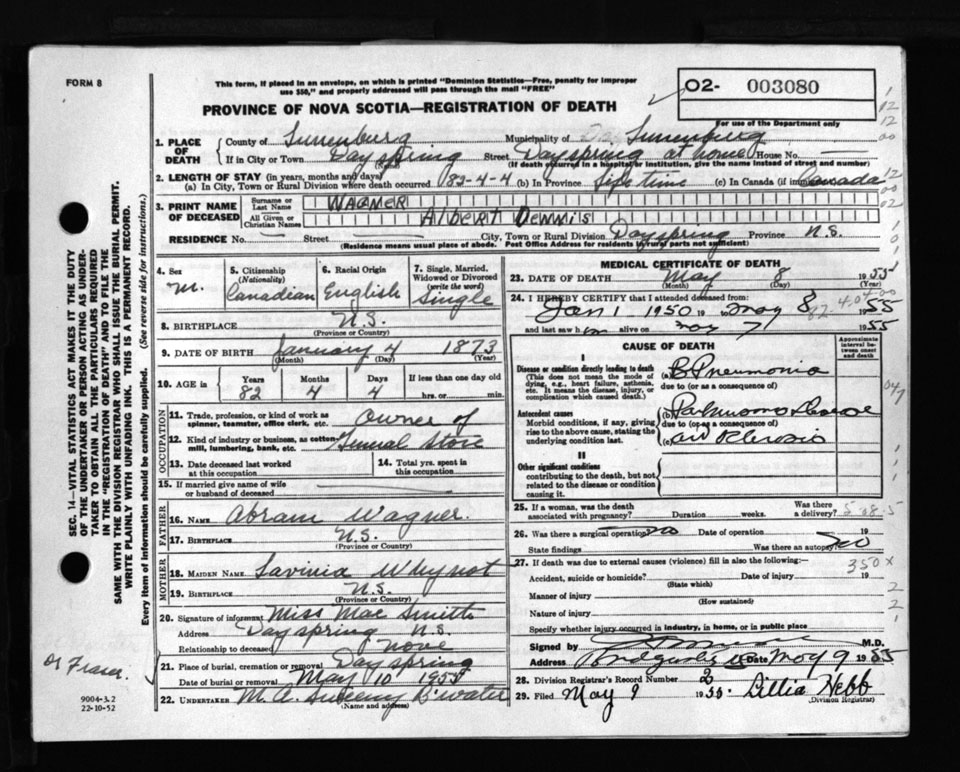 FORM 8
This form, if placed in an envelope, on which is printed "Dominion Statistics—Free, penalty for improper
use $50," and properly addressed will pass through the mail "FREE"
PROVINCE OF NOVA SCOTIA—REGISTRATION OF DEATH
02- 003080
For use of the Department only
1. PLACE OF DEATH
County of Lunenburg Municipality of Lunenburg
If in City or Town Dayspring Street Dayspring at home House No. —
(If death occurred in a hospital or institution, give the name instead of street and number)
2. LENGTH OF STAY (in years, months and days)
(a) In City, Town or Rural Division where death occurred 82-4-4 (b) In Province Life time (c) In Canada (if immigrant) Canada
3. PRINT NAME OF DECEASED
Surname or Last Name WAGNER
All Given or Christian Names Albert Dennis
RESIDENCE No. — Street — City, Town or Rural Division Dayspring Province N.S.
(Residence means usual place of abode. Post Office Address for residents in rural parts not sufficient)
4. Sex M.
5. Citizenship (Nationality) Canadian
6. Racial Origin English
7. Single, Married, Widowed or Divorced (write the word) Single
8. BIRTHPLACE N.S.
(Province or Country)
9. DATE OF BIRTH January 4 1873
(Month) (Day) (Year)
10. AGE in Years Months Days If less than one day old
82 4 4 hrs. or min.
OCCUPATION
11. Trade, profession, or kind of work as spinner, teamster, office clerk, etc. Owner of
12. Kind of industry or business, as cotton-mill, lumbering, bank, etc. General Store
13. Date deceased last worked at this occupation
14. Total yrs. spent in this occupation
15. If married give name of wife or husband of deceased —
FATHER
16. NAME Abram Wagner.
17. BIRTHPLACE N.S.
(Province or Country)
MOTHER
18. MAIDEN NAME Savinia Whynot
19. BIRTHPLACE N.S.
(Province or Country)
20. Signature of informant Miss Mae Smith
Address Dayspring N.S.
Relationship to deceased None
21. Place of burial, cremation or removal Dayspring
Date of burial or removal May 10 1955
22. UNDERTAKER M. A. Sweeny B'water
(Name and address)
MEDICAL CERTIFICATE OF DEATH
23. DATE OF DEATH May 8 1955
(Month) (Day)
24. I HEREBY CERTIFY that I attended deceased from:
Jan 1 1950 19 to May 8 1955
and last saw him alive on May 7 1955
CAUSE OF DEATH
Approximate interval between onset and death
I
Disease or condition directly leading to death
(This does not mean the mode of dying, e.g., heart failure, asthenia, etc. It means the disease, injury, or complication which caused death.)
(a) B Pneumonia
due to (or as a consequence of)
Antecedent causes
Morbid conditions, if any, giving rise to the above cause, stating the underlying condition last.
(b) Parkinsons Disease
due to (or as a consequence of)
(c)
II
Other significant conditions
contributing to the death, but not related to the disease or condition causing it.
25. If a woman, was the death associated with pregnancy? Duration weeks. Was there a delivery?
26. Was there a surgical operation? no Date of operation 19
State findings Was there an autopsy? no
27. If death was due to external causes (violence) fill in also the following:—
Accident, suicide or homicide? Date of injury 19
(State which)
Manner of injury
(How sustained)
Nature of injury
Specify whether injury occurred in industry, in home, or in public place
Signed by M.D.
Address Bridgewater Date May 9 1955
28. Division Registrar's Record Number 2
29. Filed May 9 1955. Lillia Hebb
(Division Registrar)
SEC. 14—VITAL STATISTICS ACT MAKES IT THE DUTY
OF THE UNDERTAKER OR PERSON ACTING AS UNDER-
TAKER TO OBTAIN ALL THE PARTICULARS REQUIRED
IN THE "REGISTRATION OF DEATH" AND TO FILE THE
SAME WITH THE DIVISION REGISTRAR WHO SHALL ISSUE THE BURIAL PERMIT.
WRITE PLAINLY WITH UNFADING INK. THIS IS A PERMANENT RECORD.
Every item of information should be carefully supplied. (See reverse side for instructions.)
Dr Fraser.
9004-3.2
22-10-52
350X